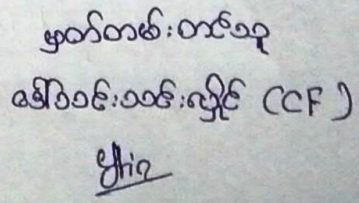 မှတ်တမ်းတင်သူ
ဒေါ်ဝင်းသင်းလှိုင် (CF)